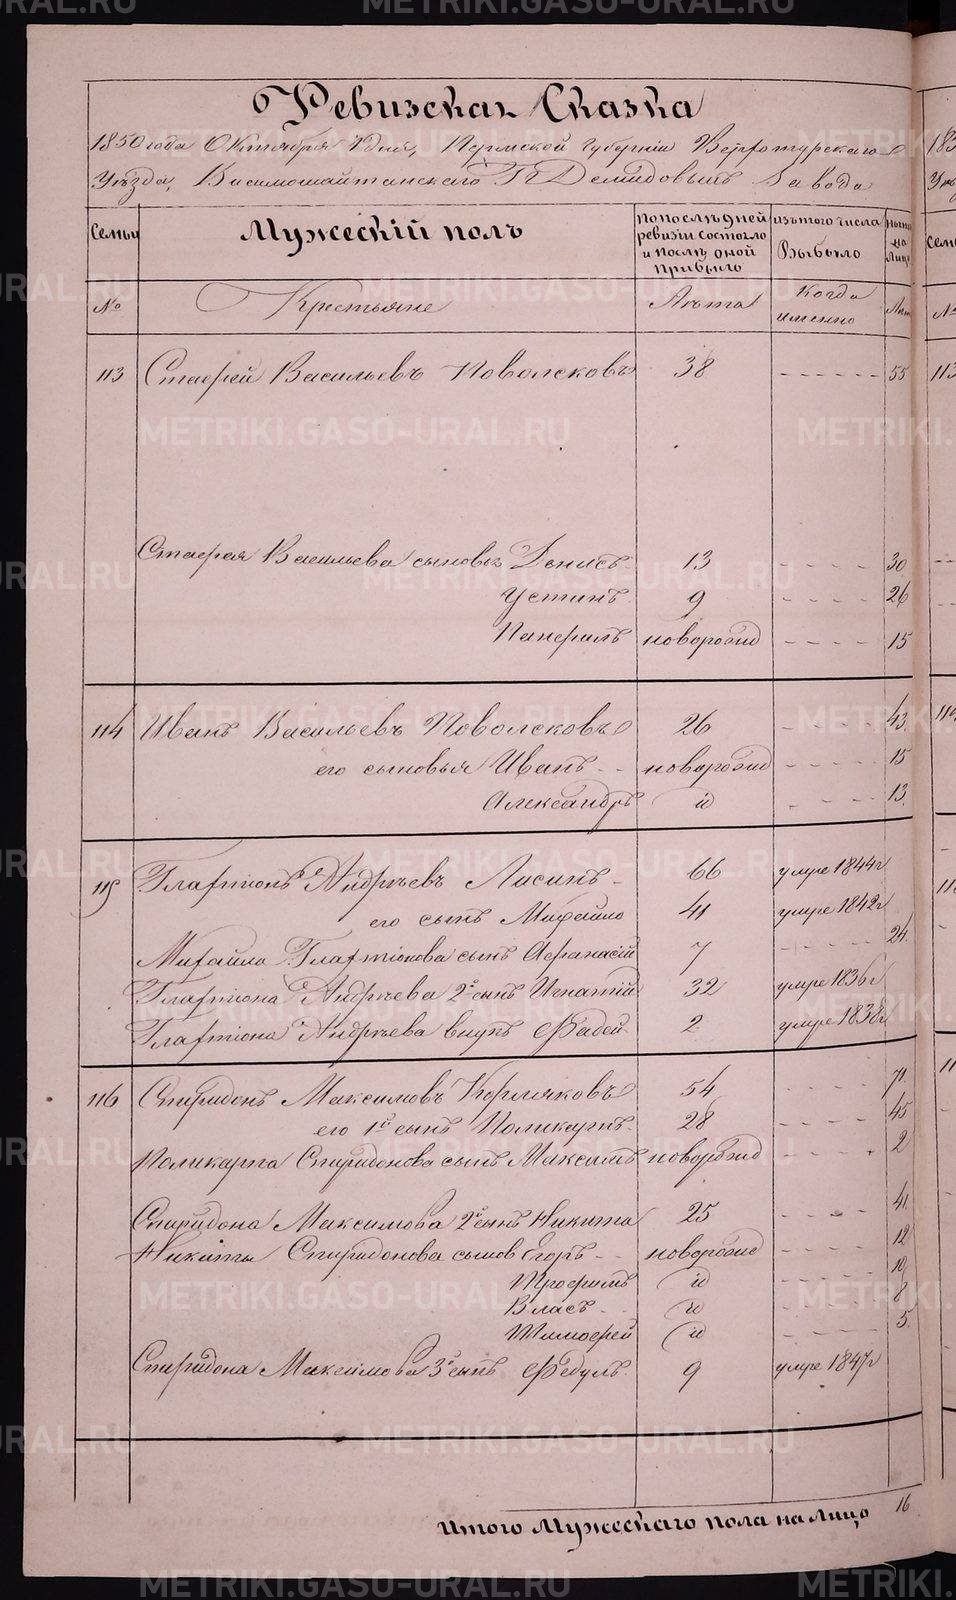 METRIKI.GASO-URAL.RU
Ревизская Сказка
1850 года Октября дня, Пермской Губернии Верхотурскаго
Уѣзда, Висимошайтанскаго Г Демидовыхъ Завода
Семьи
Мужескій полъ
По послѣдней ревизіи состояло и послѣ оной прибыло
Изъ того числа Выбыло
Нынѣ на лицо
№
Крестьяне
Лѣта
Когда именно
Лѣта
113 Стафей Васильевъ Поволяковъ 38 - - - - - - 55
Стафея Васильева сыновья Денисъ 13 - - - - 30
Устинъ 9 - - - - 26
Панфилъ новорожд - - - - 15
114 Иванъ Васильевъ Поволяковъ 26 - - - - 43
его сыновья Иванъ новорожд - - - - 15
Александръ id - - - - 13
115 Иларіонъ Андрѣевъ Лисинъ 66 умре 1844 г
его сынъ Михайло 41 умре 1842 г
Михайла Иларіонова сынъ Афанасій 7 - - - - 24
Иларіона Андрѣева 2й сынъ Игнатій 32 умре 1836 г
Иларіона Андрѣева внукъ Фадей 2 умре 1838 г
116 Спиридонъ Максимовъ Кормляковъ 54 - - - - 71
его 1й сынъ Поликарпъ 28 - - - - 45
Поликарпа Спиридонова сынъ Максимъ новорожд - - - - 2
Спиридона Максимова 2й сынъ Никита 25 - - - - 41
Никиты Спиридонова сынов Егоръ новорожд - - - - 12
Трофимъ id - - - - 10
Власъ id - - - - 8
Тимофей id - - - - 5
Спиридона Максимова 3й сынъ Федулъ 9 умре 1847 г
Итого Мужескаго пола на лицо 16